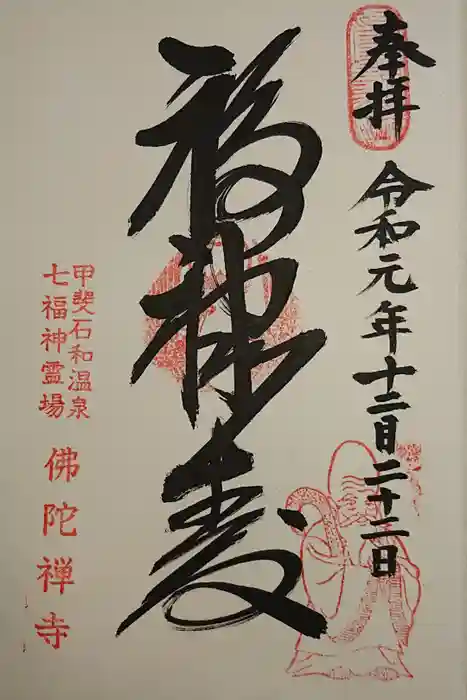 奉拝
令和元年十二月二十二日
福禄寿
甲斐石和温泉
七福神霊場
佛陀禅寺